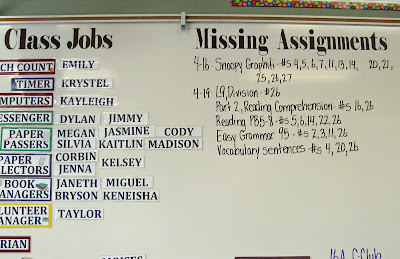 Class Jobs
CH COUNT EMILY
TIMER KRYSTEL
MPUTERS KAYLEIGH
ESSENGER DYLAN JIMMY
PAPER PASSERS MEGAN JASMINE CODY
SILVIA KAITLIN MADISON
PAPER LLECTORS CORBIN KELSEY
JENNA
BOOK ANAGERS JANETH MIGUEL
BRYSON KENEISHA
LUNTEER ANAGER TAYLOR
RIAN
Missing Assignments
4-16- Snoopy Graphiti- #s 4, 5, 6, 7, 11, 13, 14, 20, 21,
25, 26, 27
4-19- L9, Division- #26
Part 2, Reading Comprehension- #s 16, 26
Reading PB5-8- #s 5, 6, 14, 22, 26
Easy Grammar 95- #s 2, 3, 11, 26
Vocabulary sentences #s 4, 20, 26